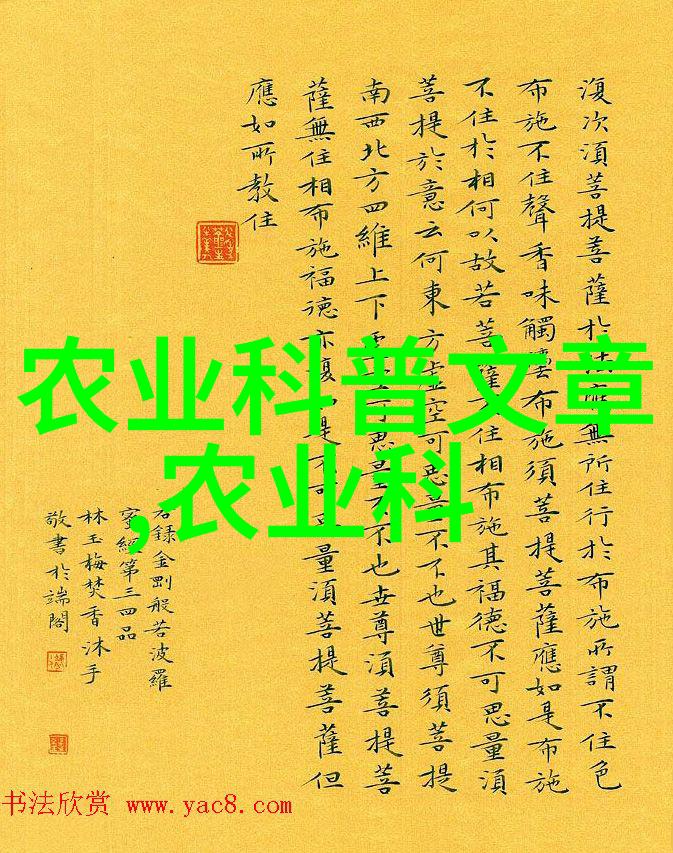 復次湏菩提菩薩於法應無所住行於布施所謂不住色
布施不住聲香味觸灋布施須菩提菩薩應如是布施
不住於相何以故若菩薩不住相布施其福德不可思量湏
菩提於意云何東方虛空可思量不不也世尊須菩提
南西北方四維上下虛空可思量不不也世尊湏菩提菩
薩無住相布施福德亦復如是不可思量湏菩提菩薩但
應如所教住
右錄金剛般若波羅
蜜經第三四品
林玉梅焚香沐手
敬書於端閣
农业科普文章
,农业科
书法欣赏 www.yac8.com